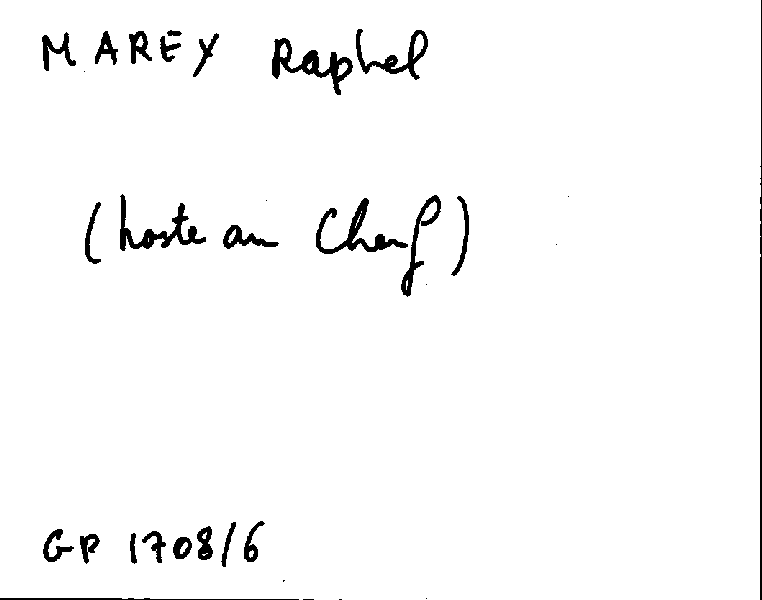 MAREY Raphel
(hoste au Cherf)
GP 1708/6